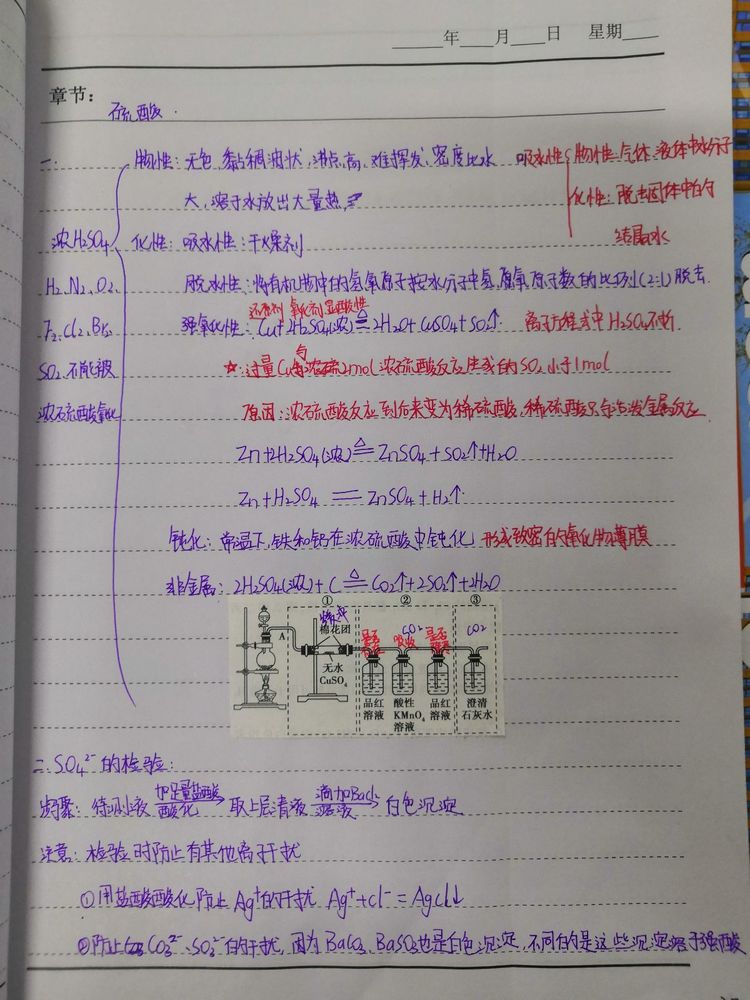 ____年____月____日 星期____
章节：
硫酸
一. 物性：无色，黏稠油状，沸点高，难挥发，密度比水 吸水性 物性：气体、液体中水分子
大，溶于水放出大量热， 化性：脱去固体中的
结晶水
浓H₂SO₄ 化性：吸水性：干燥剂
H₂、N₂、O₂ 脱水性：将有机物中的氢氧原子按水分子中氢、氧原子数的比例(2:1)脱去
还原剂 氧化剂、显酸性
F₂、Cl₂、Br₂ 强氧化性：Cu+2H₂SO₄(浓)≜2H₂O+CuSO₄+SO₂↑ 离子方程式中H₂SO₄不拆
SO₂、不能被 ☆：过量Cu与浓硫2mol浓硫酸反应生成的SO₂小于1mol
浓硫酸氧化 原因：浓硫酸反应到后来变为稀硫酸，稀硫酸只与活泼金属反应
Zn+2H₂SO₄(浓)≜ZnSO₄+SO₂↑+H₂O
Zn+H₂SO₄=ZnSO₄+H₂↑
钝化：常温下，铁和铝在浓硫酸中钝化 形成致密的氧化物薄膜
非金属：2H₂SO₄(浓)+C≜CO₂↑+2SO₂↑+2H₂O
① ② ③
棉花团 CO₂ CO₂
A 吸收
无水
CuSO₄
品红
溶液
酸性
KMnO₄
溶液
品红
溶液
澄清
石灰水
二. SO₄²⁻的检验：
步骤：待测液 加足量盐酸 酸化 → 取上层清液 滴加BaCl₂ 溶液 → 白色沉淀
注意：检验时防止有其他离子干扰
①用盐酸酸化防止Ag⁺的干扰 Ag⁺+Cl⁻=AgCl↓
②防止CO₃²⁻、SO₃²⁻的干扰，因为BaCO₃、BaSO₃也是白色沉淀，不同的是这些沉淀溶于强酸